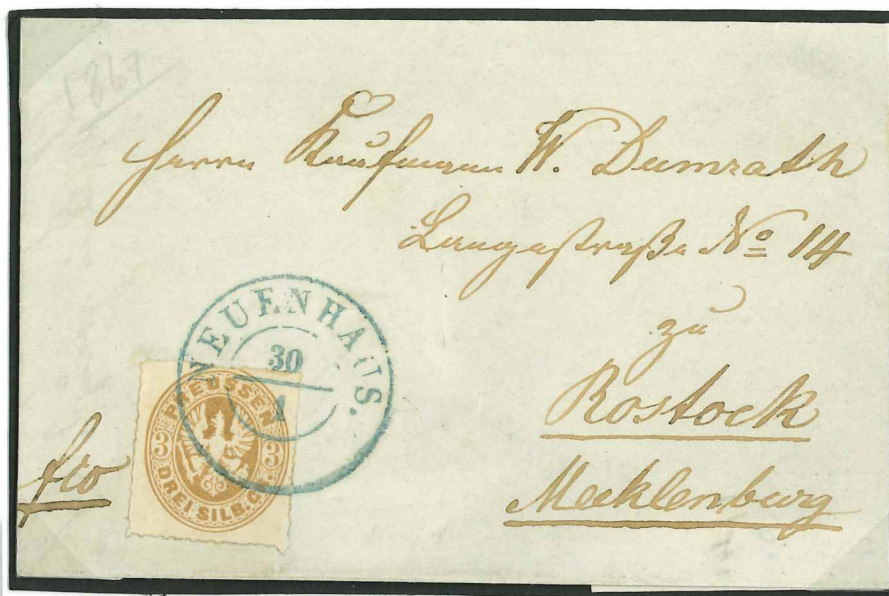 1867
Herrn Kaufmann W. Dumrath
Langestraße No 14
zu
Rostock
Mecklenburg
fco
NEUENHAUS.
30
1
PREUSSEN
3 3
DREI SILB. GR.